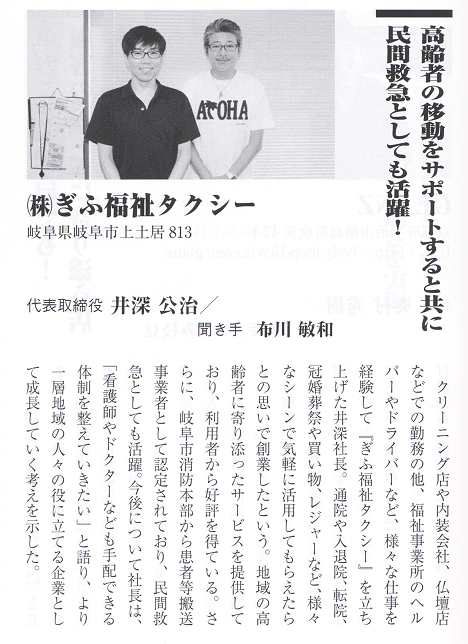 高齢者の移動をサポートすると共に
民間救急としても活躍！
ALOHA
㈱ぎふ福祉タクシー
岐阜県岐阜市上土居813
代表取締役 井深 公治／
聞き手 布川 敏和
クリーニング店や内装会社、仏壇店
などでの勤務の他、福祉事業所のヘル
パーやドライバーなど、様々な仕事を
経験して『ぎふ福祉タクシー』を立ち
上げた井深社長。通院や入退院、転院、
冠婚葬祭や買い物、レジャーなど、様々
なシーンで気軽に活用してもらえたら
との思いで創業したという。地域の高
齢者に寄り添ったサービスを提供して
おり、利用者から好評を得ている。さ
らに、岐阜市消防本部から患者等搬送
事業者として認定されており、民間救
急としても活躍。今後について社長は、
「看護師やドクターなども手配できる
体制を整えていきたい」と語り、より
一層地域の人々の役に立てる企業とし
て成長していく考えを示した。